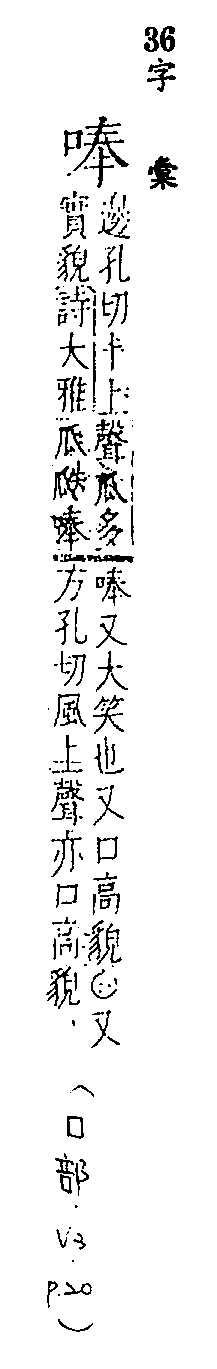 36字彙
唪
邊孔切卜上聲瓜多
實貌詩大雅瓜瓞唪
唪又大笑也又口高貌○又
方孔切風上聲亦口高貌.
(口部.V3.p.20)